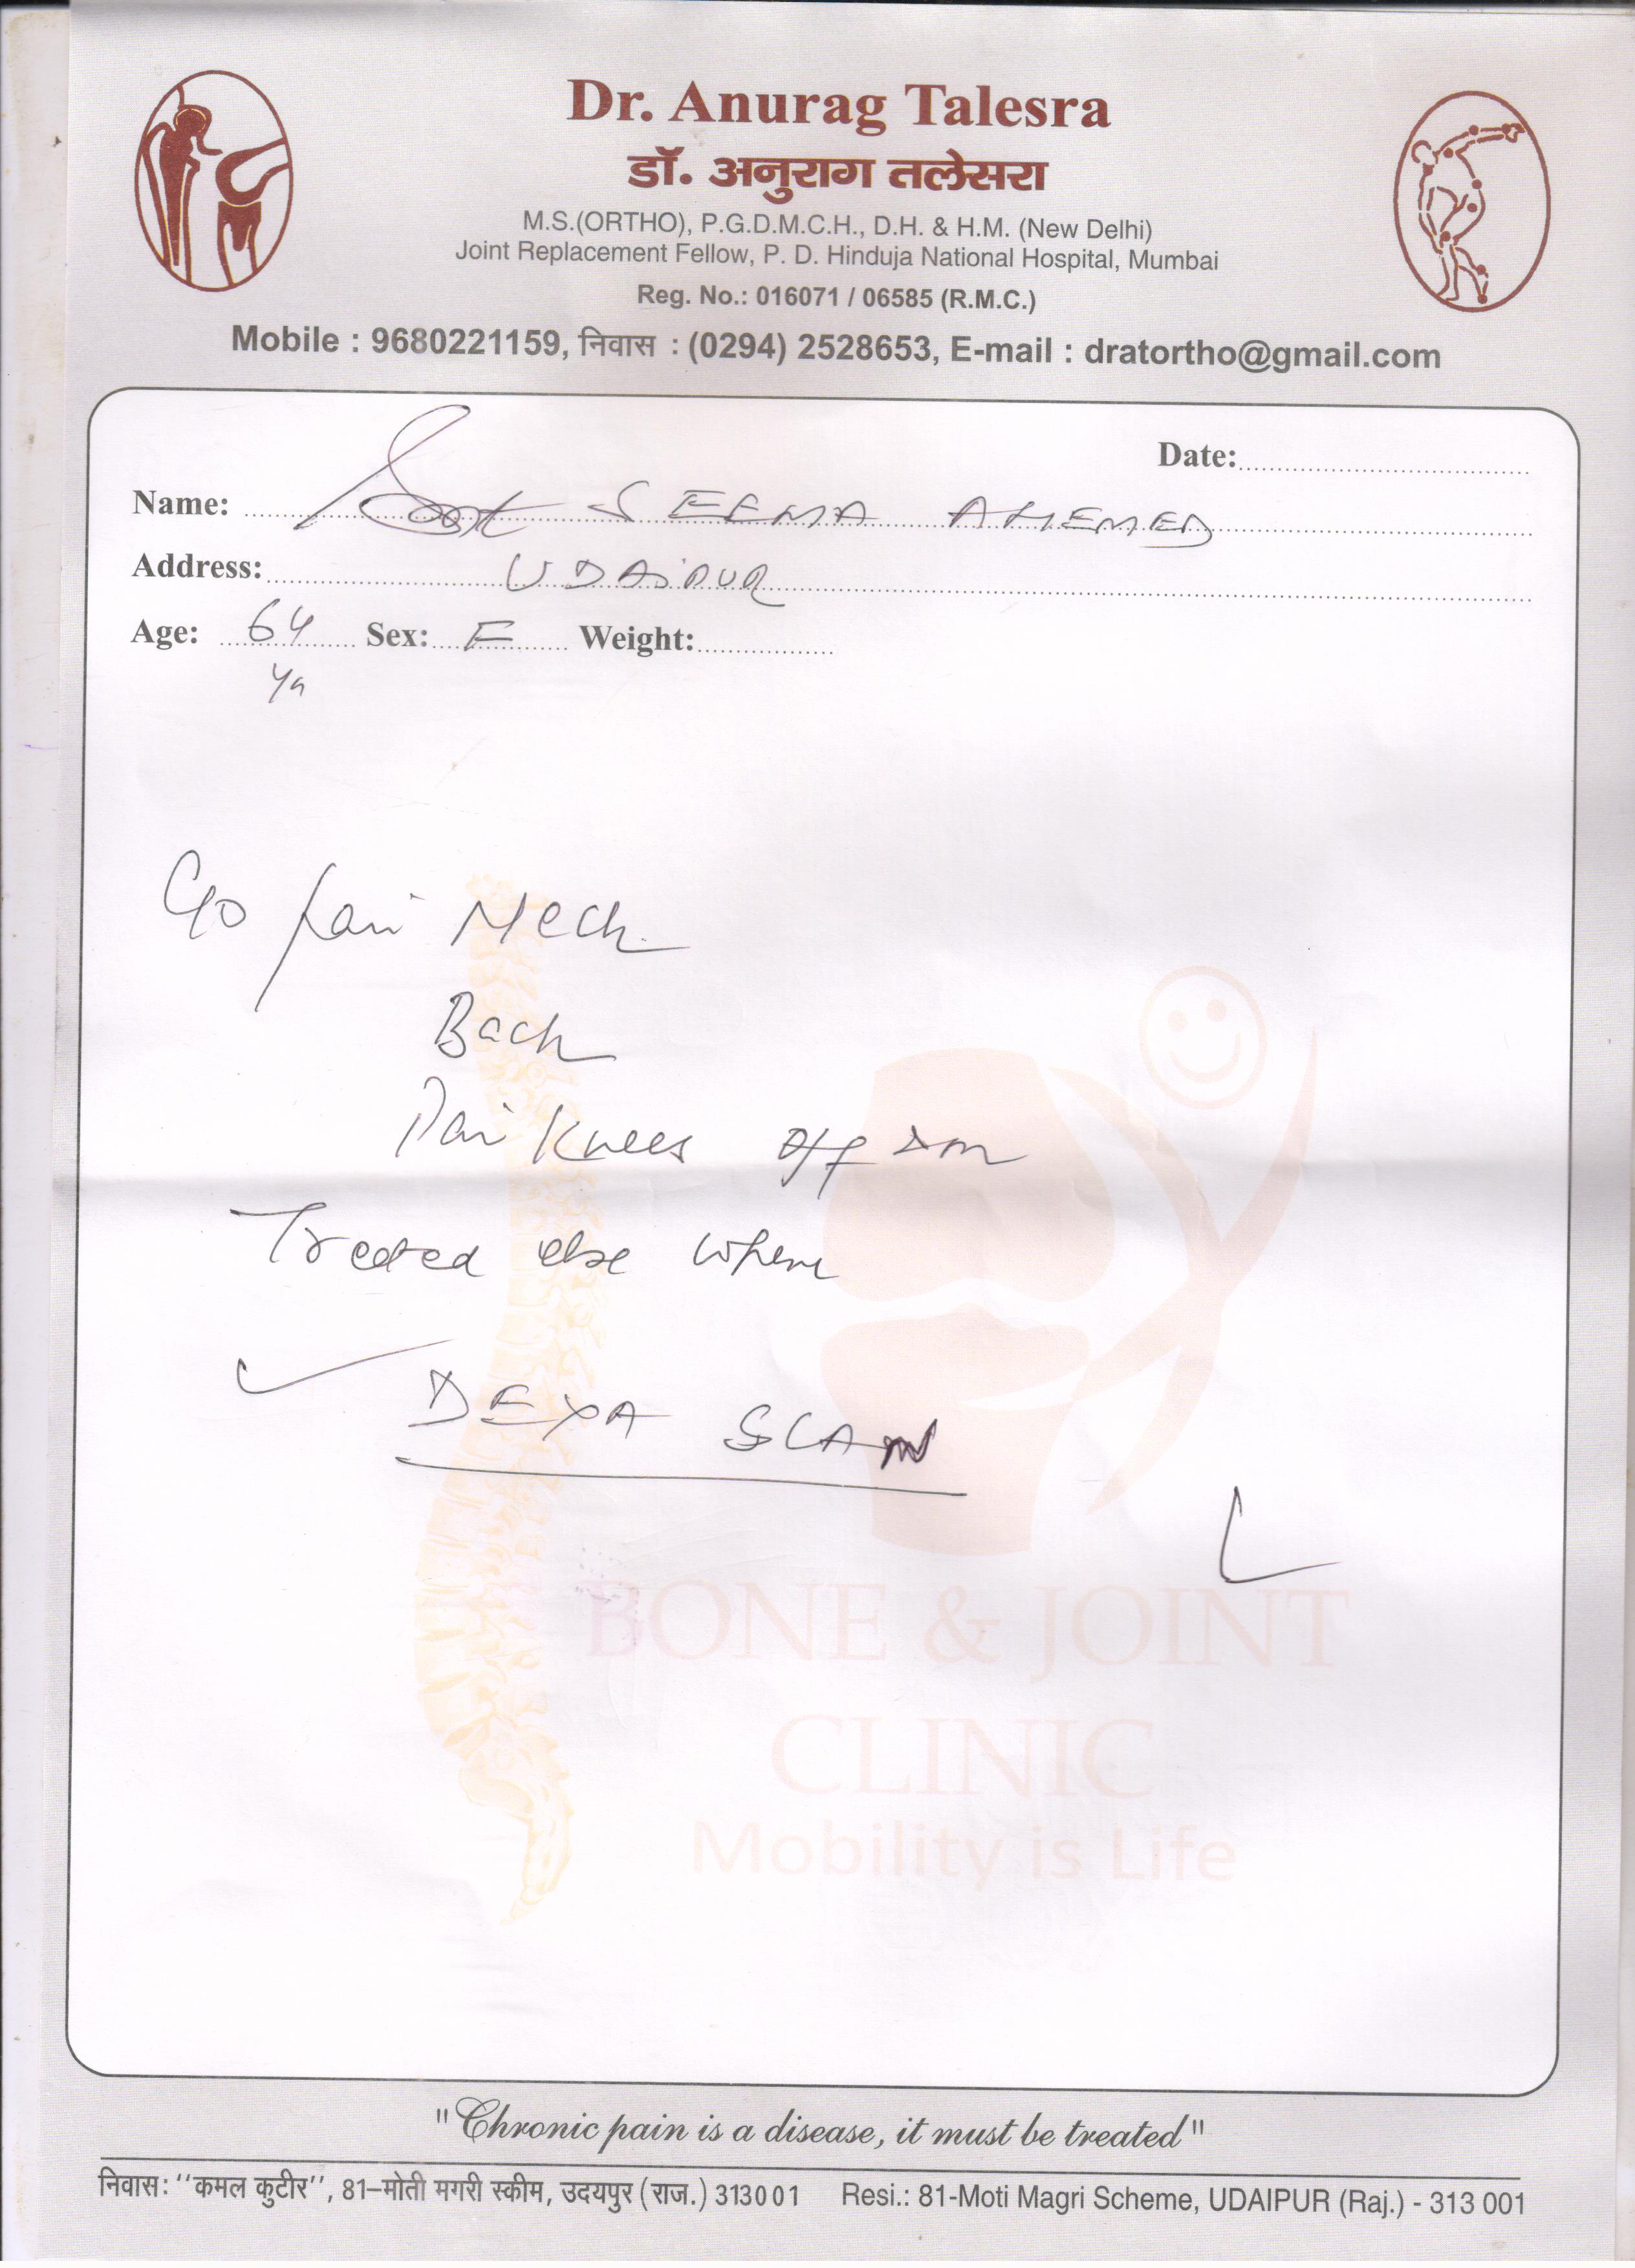 Dr. Anurag Talesra
डॉ. अनुराग तलेसरा
M.S.(ORTHO), P.G.D.M.C.H., D.H. & H.M. (New Delhi)
Joint Replacement Fellow, P. D. Hinduja National Hospital, Mumbai
Reg. No.: 016071 / 06585 (R.M.C.)
Mobile : 9680221159, निवास : (0294) 2528653, E-mail : dratortho@gmail.com
Date:
Name: Smt SEEMA AHEMED
Address: UDAIPUR
Age: 64 Sex: F Weight:
Yr
C/o Pain Neck
Back
Pain Knees
Treated else where
DEXA SCAN
BONE & JOINT
CLINIC
Mobility is Life
"Chronic pain is a disease, it must be treated"
निवास: ‘‘कमल कुटीर’’, 81–मोती मगरी स्कीम, उदयपुर (राज.) 313001 Resi.: 81-Moti Magri Scheme, UDAIPUR (Raj.) - 313 001